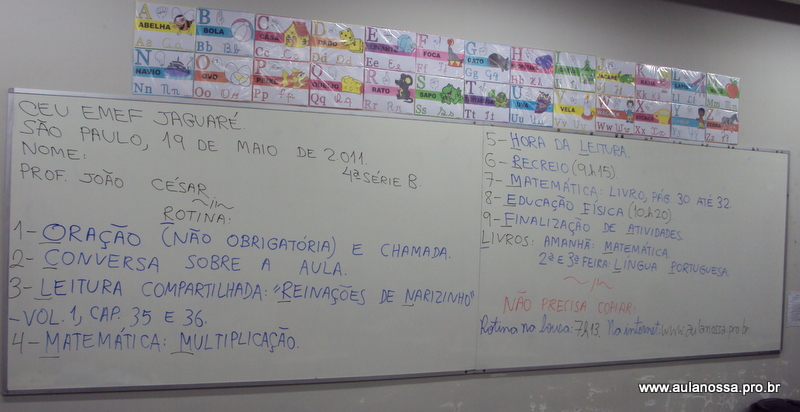 A ABELHA Aa
B BOLA Bb
C CASA Cc
D DADO Dd
E Ee
F FOCA Ff
G GATO Gg
N NAVIO Nn
O OVO Oo
P Pp
Q QUEIJO Qq
R RATO Rr
S SAPO Ss
T Tt
U UVA Uu
V VELA Vv
Ww
Xx
Z
CEU EMEF JAGUARÉ.
SÃO PAULO, 19 DE MAIO DE 2.011.
NOME:
4ª SÉRIE B.
PROF. JOÃO CÉSAR
ROTINA:
1- ORAÇÃO (NÃO OBRIGATÓRIA) E CHAMADA.
2- CONVERSA SOBRE A AULA.
3- LEITURA COMPARTILHADA: "REINAÇÕES DE NARIZINHO"
-VOL. 1, CAP. 35 E 36.
4- MATEMÁTICA: MULTIPLICAÇÃO.
5- HORA DA LEITURA.
6- RECREIO (9h15).
7- MATEMÁTICA: LIVRO, PÁG 30 ATÉ 32
8- EDUCAÇÃO FÍSICA (10h20)
9- FINALIZAÇÃO DE ATIVIDADES.
LIVROS: AMANHÃ: MATEMÁTICA.
2ª E 3ª FEIRA: LÍNGUA PORTUGUESA.
NÃO PRECISA COPIAR:
Rotina na lousa: 7h13. Na internet: www.aulanossa.pro.br
www.aulanossa.pro.br